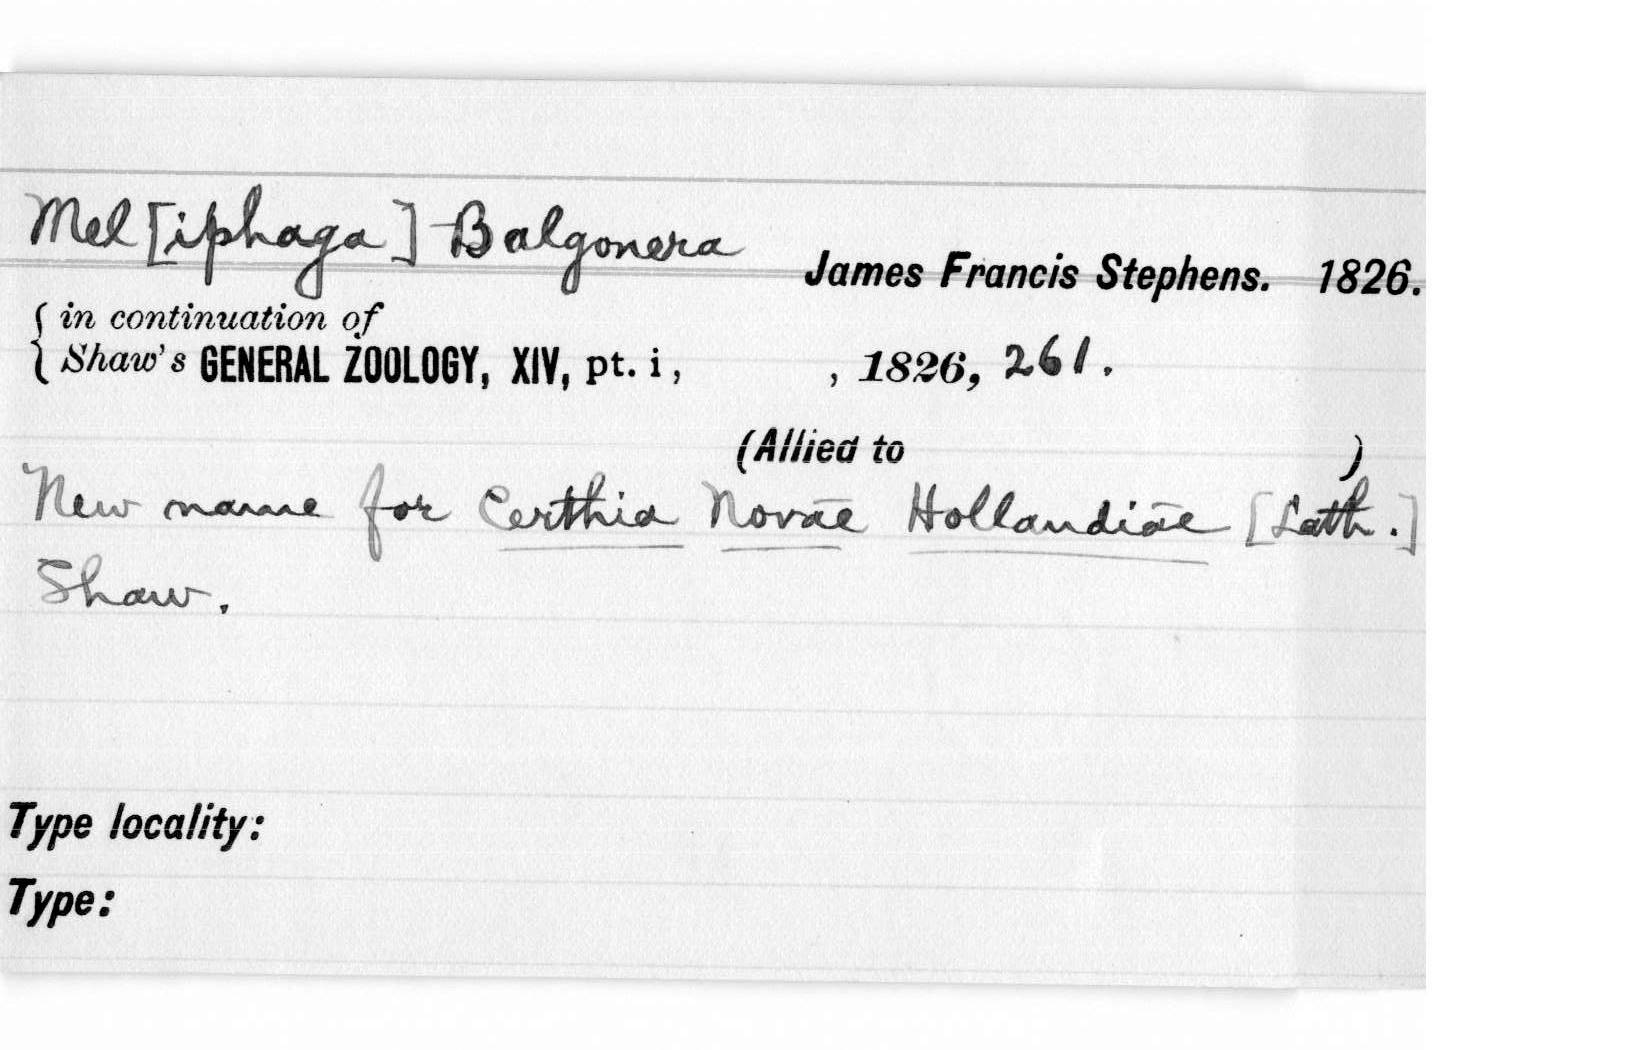 Mel[iphaga] Balgonera
James Francis Stephens. 1826.
in continuation of
Shaw's GENERAL ZOOLOGY, XIV, pt. i, , 1826, 261.
(Allied to )
New name for Certhia Novae Hollandiae [Lath.]
Shaw.
Type locality:
Type: